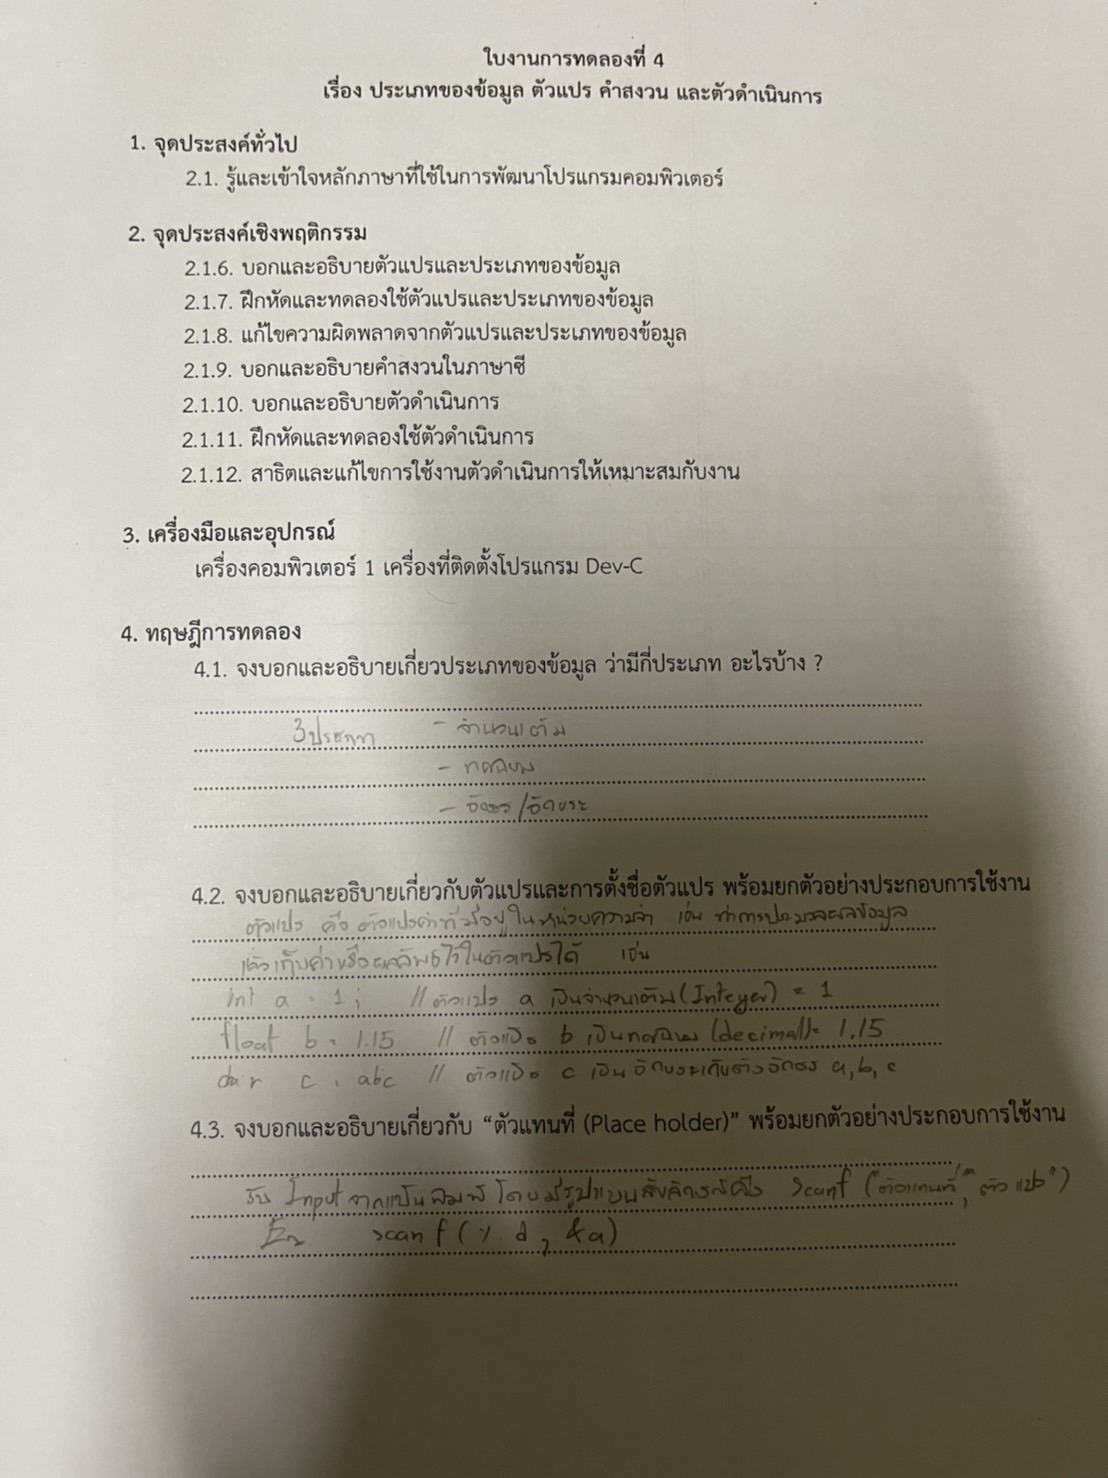 ใบงานการทดลองที่ 4
เรื่อง ประเภทของข้อมูล ตัวแปร คำสงวน และตัวดำเนินการ
1. จุดประสงค์ทั่วไป
2.1. รู้และเข้าใจหลักภาษาที่ใช้ในการพัฒนาโปรแกรมคอมพิวเตอร์
2. จุดประสงค์เชิงพฤติกรรม
2.1.6. บอกและอธิบายตัวแปรและประเภทของข้อมูล
2.1.7. ฝึกหัดและทดลองใช้ตัวแปรและประเภทของข้อมูล
2.1.8. แก้ไขความผิดพลาดจากตัวแปรและประเภทของข้อมูล
2.1.9. บอกและอธิบายคำสงวนในภาษาซี
2.1.10. บอกและอธิบายตัวดำเนินการ
2.1.11. ฝึกหัดและทดลองใช้ตัวดำเนินการ
2.1.12. สาธิตและแก้ไขการใช้งานตัวดำเนินการให้เหมาะสมกับงาน
3. เครื่องมือและอุปกรณ์
เครื่องคอมพิวเตอร์ 1 เครื่องที่ติดตั้งโปรแกรม Dev-C
4. ทฤษฎีการทดลอง
4.1. จงบอกและอธิบายเกี่ยวประเภทของข้อมูล ว่ามีกี่ประเภท อะไรบ้าง ?
3ประเภท - จำนวนเต็ม
- ทศนิยม
- อักษร/อักขระ
4.2. จงบอกและอธิบายเกี่ยวกับตัวแปรและการตั้งชื่อตัวแปร พร้อมยกตัวอย่างประกอบการใช้งาน
ตัวแปร คือ ตัวแปรค่าที่มีอยู่ในหน่วยความจำ เช่น ทำการประมวลผลข้อมูล
แล้วเก็บค่าหรือผลลัพธ์ไว้ในตัวแปรได้ เช่น
int a = 1; // ตัวแปร a เป็นจำนวนเต็ม (Integer) = 1
float b = 1.15 // ตัวแปร b เป็นทศนิยม (decimal) = 1.15
char c = abc // ตัวแปร c เป็นอักขระเก็บตัวอักษร a, b, c
4.3. จงบอกและอธิบายเกี่ยวกับ “ตัวแทนที่ (Place holder)” พร้อมยกตัวอย่างประกอบการใช้งาน
รับ Input จากแป้นพิมพ์ โดยมีรูปแบบสัญลักษณ์คือ scanf ("ตัวแทนที่", "ตัวแปร")
scanf (% d, &a)